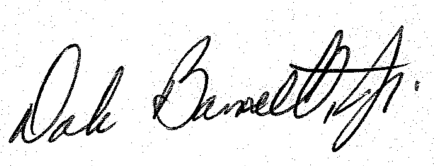 Dale Barnett, Jr.